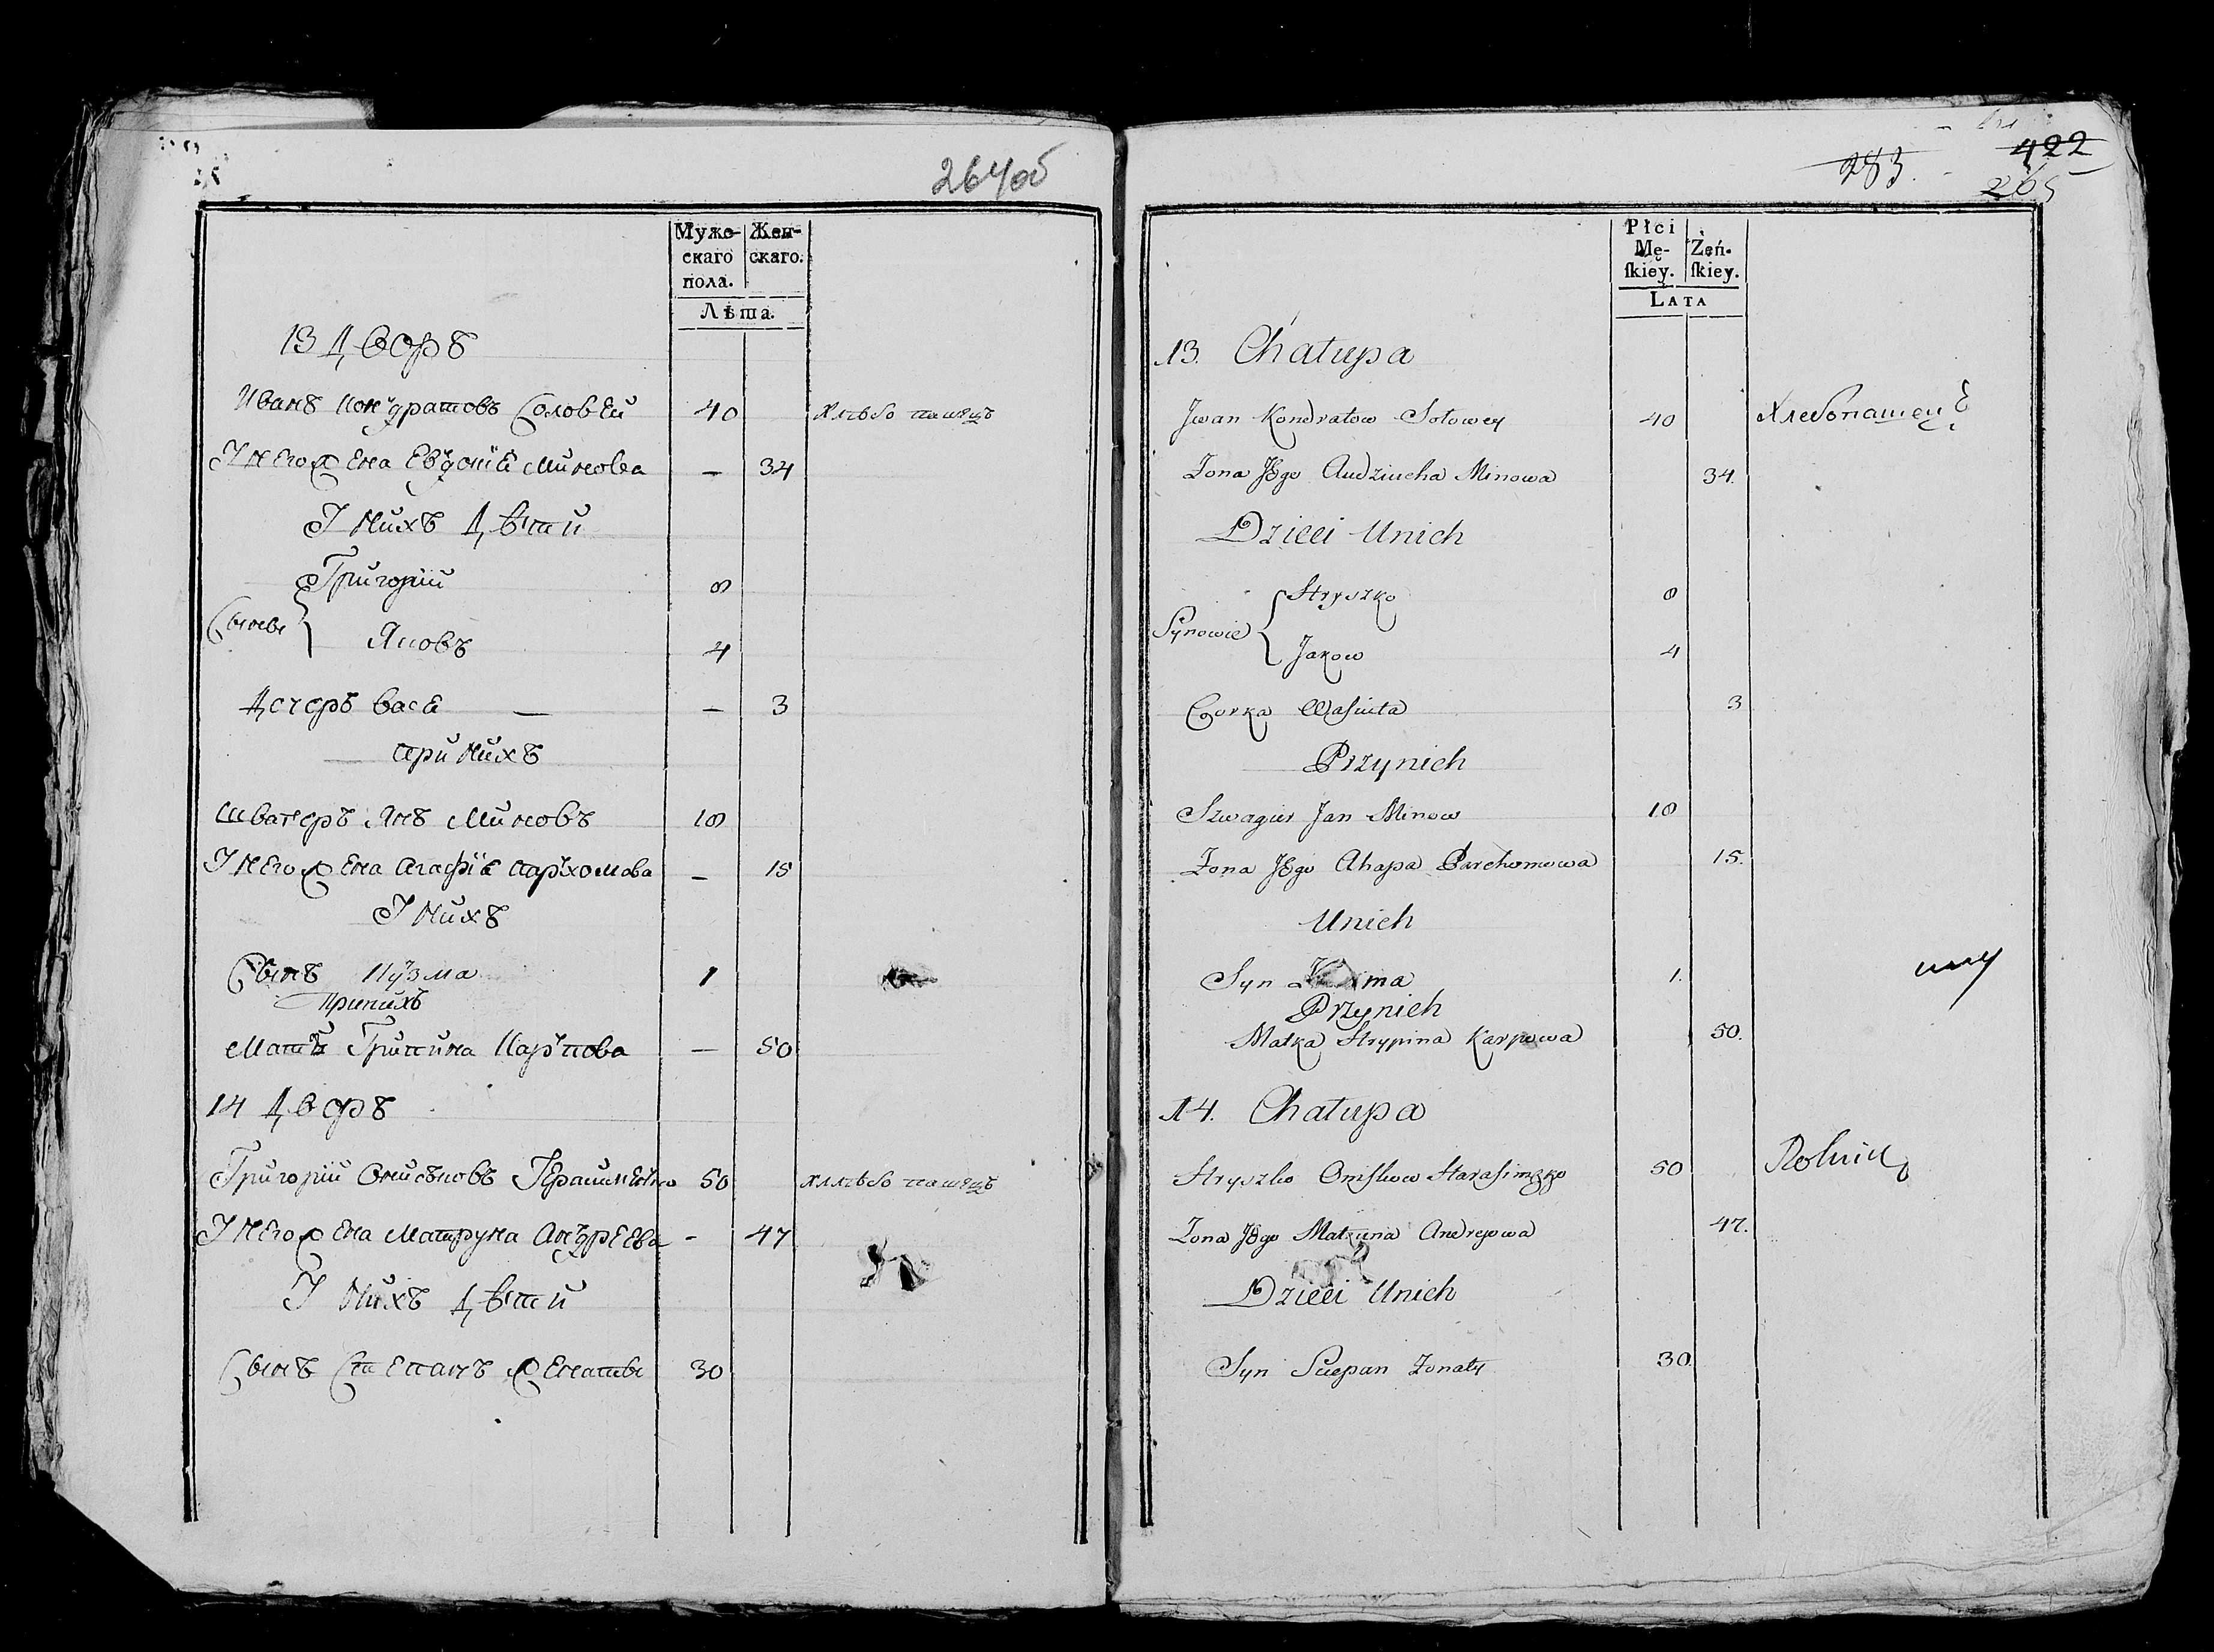 264об
Муже-
скаго
пола.
Жен-
скаго.
Лѣта.
13 Дворъ
Иванъ Кондратовъ Соловей 40 хлѣбопашецъ
У него жена Евдокия Минова — 34
У нихъ дѣти
Григорий 8
Сыновя
Яковъ 4
Дочеръ Вася — — 3
При нихъ
Швагеръ Янъ Миновъ 18
У него жена Агафия Пархомова — 15
У нихъ
Сынъ Кузма 1
При нихъ
Мать Грипина Карпова — 50
14 Дворъ
Григорий Онисковъ 50 хлѣбопашецъ
У него жена Матруна Андреева - 47
У нихъ дѣти
Сынъ Степанъ женаты 30
283. 422
265
Płci
Mę-
ſkiey.
Żeń-
ſkiey.
LATA
13. Chałupa
Jwan Kondratow Sołowey 40 Хлебопашецъ
Zona Jego Audziucha Minowa 34.
Dzieci Unich
Hryszko 8
Synowie
Jakow 4
Corka Wasiuta 3
Przynich
Szwagier Jan Minow 18
Zona Jego Ahapa Parchomowa 15.
Unich
Syn 1.
Przynich
Matka Hrypina Karpowa 50.
14. Chałupa
Hryszko Oniskow Harasimezko 50 Rolnik
Zona Jego Matruna Andrejowa 47.
Dzieci Unich
Syn Sciepan Zonaty 30.